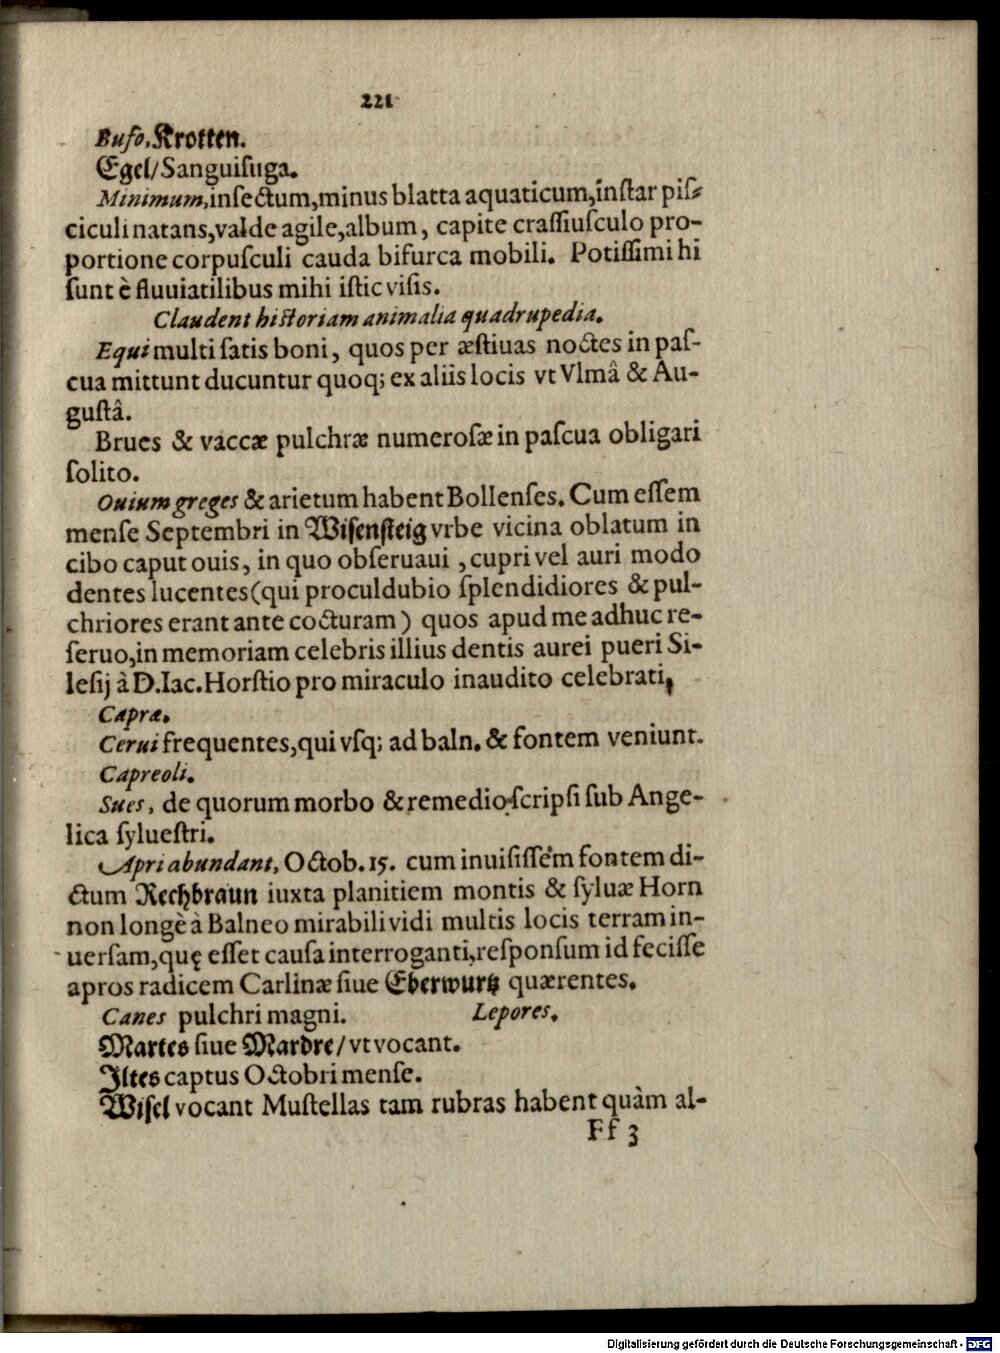 221
Bufo, Krotten.
Egel/Sanguiſuga.
Minimum,inſectum,minus blatta aquaticum,inſtar piſ-
ciculi natans,valde agile,album, capite craſſiuſculo pro-
portione corpuſculi cauda bifurca mobili. Potiſſimi hi
ſunt è fluuiatilibus mihi iſtic viſis.
Claudent hiſtoriam animalia quadrupedia.
Equi multi ſatis boni, quos per æſtiuas noctes in paſ-
cua mittunt ducuntur quoq; ex aliis locis vt Vlmâ & Au-
guſtâ.
Brues & vaccæ pulchræ numeroſæ in paſcua obligari
ſolito.
Ouium greges & arietum habent Bollenſes. Cum eſſem
menſe Septembri in Wiſenſteig vrbe vicina oblatum in
cibo caput ouis, in quo obſeruaui, cupri vel auri modo
dentes lucentes(qui proculdubio ſplendidiores & pul-
chriores erant ante cocturam) quos apud me adhuc re-
ſeruo,in memoriam celebris illius dentis aurei pueri Si-
leſij à D.Iac.Horſtio pro miraculo inaudito celebrati,
Capræ.
Cerui frequentes,qui vſq; ad baln. & fontem veniunt.
Capreoli.
Sues, de quorum morbo & remedio ſcripſi ſub Ange-
lica ſylueſtri.
Apri abundant, Octob. 15. cum inuiſiſſem fontem di-
ctum Rechbraun iuxta planitiem montis & ſyluæ Horn
non longè à Balneo mirabili vidi multis locis terram in-
uerſam,quę eſſet cauſa interroganti,reſponſum id feciſſe
apros radicem Carlinæ ſiue Eberwurtz quærentes.
Canes pulchri magni. Lepores.
Martes ſiue Mardre/vt vocant.
Iltes captus Octobri menſe.
Wiſel vocant Muſtellas tam rubras habent quàm al-
Ff 3
Digitalisierung gefördert durch die Deutsche Forschungsgemeinschaft - DFG